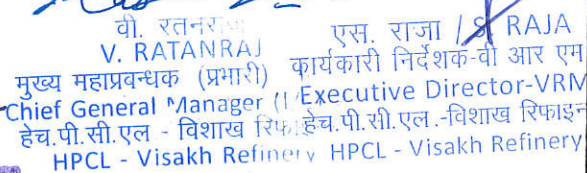 वी. रतनराज
V. RATANRAJ
मुख्य महाप्रबन्धक (प्रभारी)
Chief General Manager (I
हेच.पी.सी.एल - विशाख रिफ
HPCL - Visakh Refinery
एस. राजा / S. RAJA
कार्यकारी निर्देशक-वी आर एम
Executive Director-VRM
हेच.पी.सी.एल.-विशाख रिफाइन
HPCL - Visakh Refinery